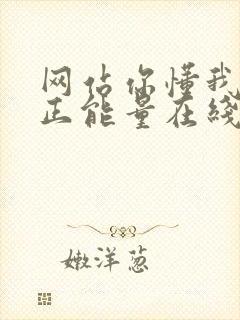 网佔你懂我
正能量在綫
嫩洋葱